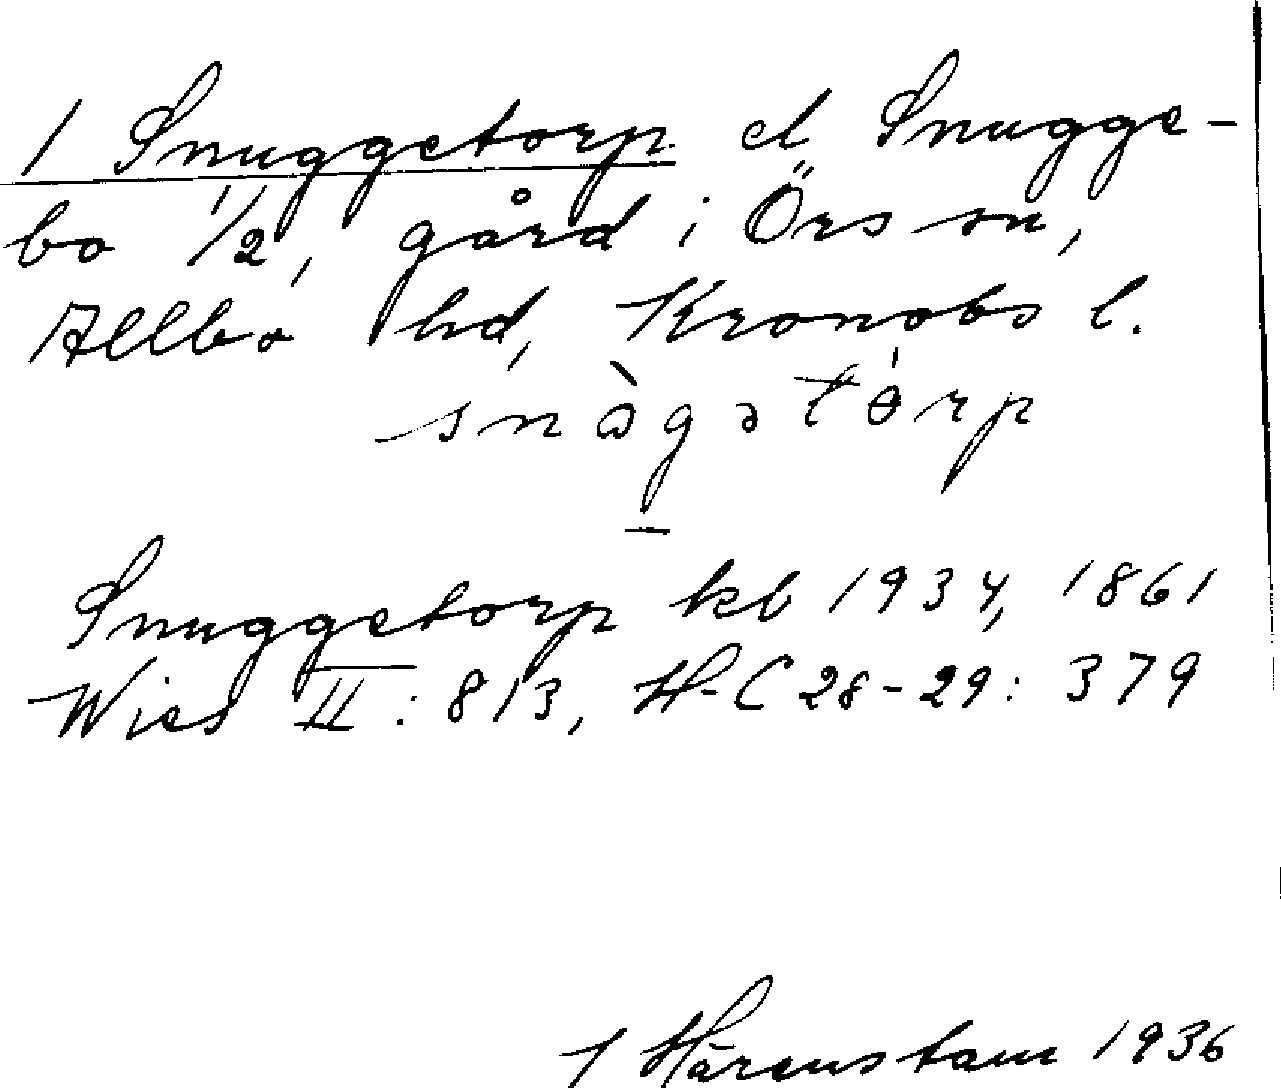 1 Snuggetorp el Snugge-
bo 1/2, gård i Örs sn,
Allbo hd, Kronobs l.
snògətórp
Snuggetorp kb 1934, 1861
Wies II: 813, H-C 28-29: 379
1 Hårenstam 1936